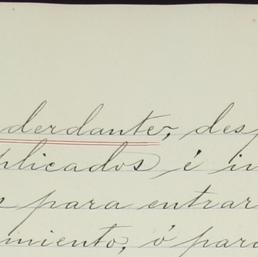 derdante, des
plicados é in
s para entrar
miento, ó para